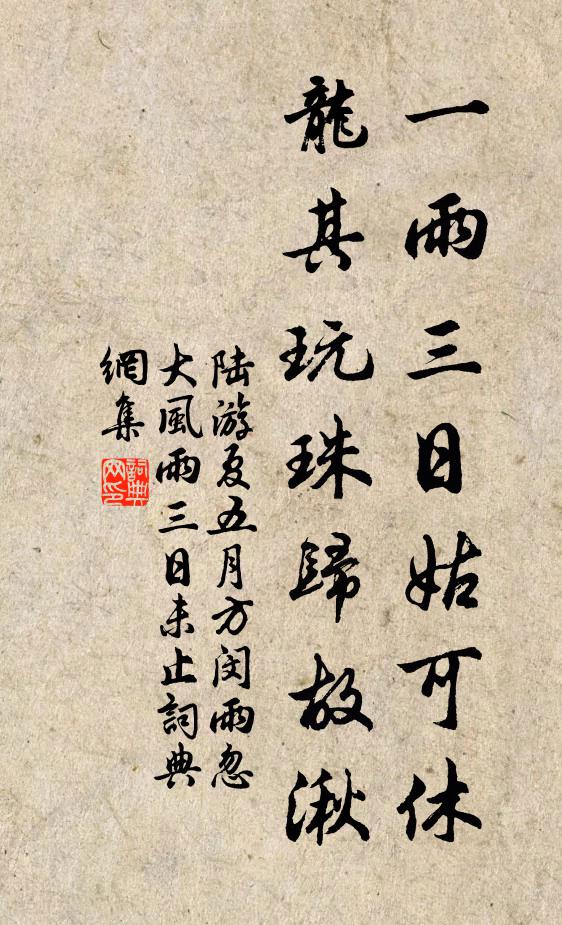 一雨三日姑可休
龍其玩珠歸故湫
陆游夏五月方闵雨忽
大風雨三日未止詞典
網集
詞典網印